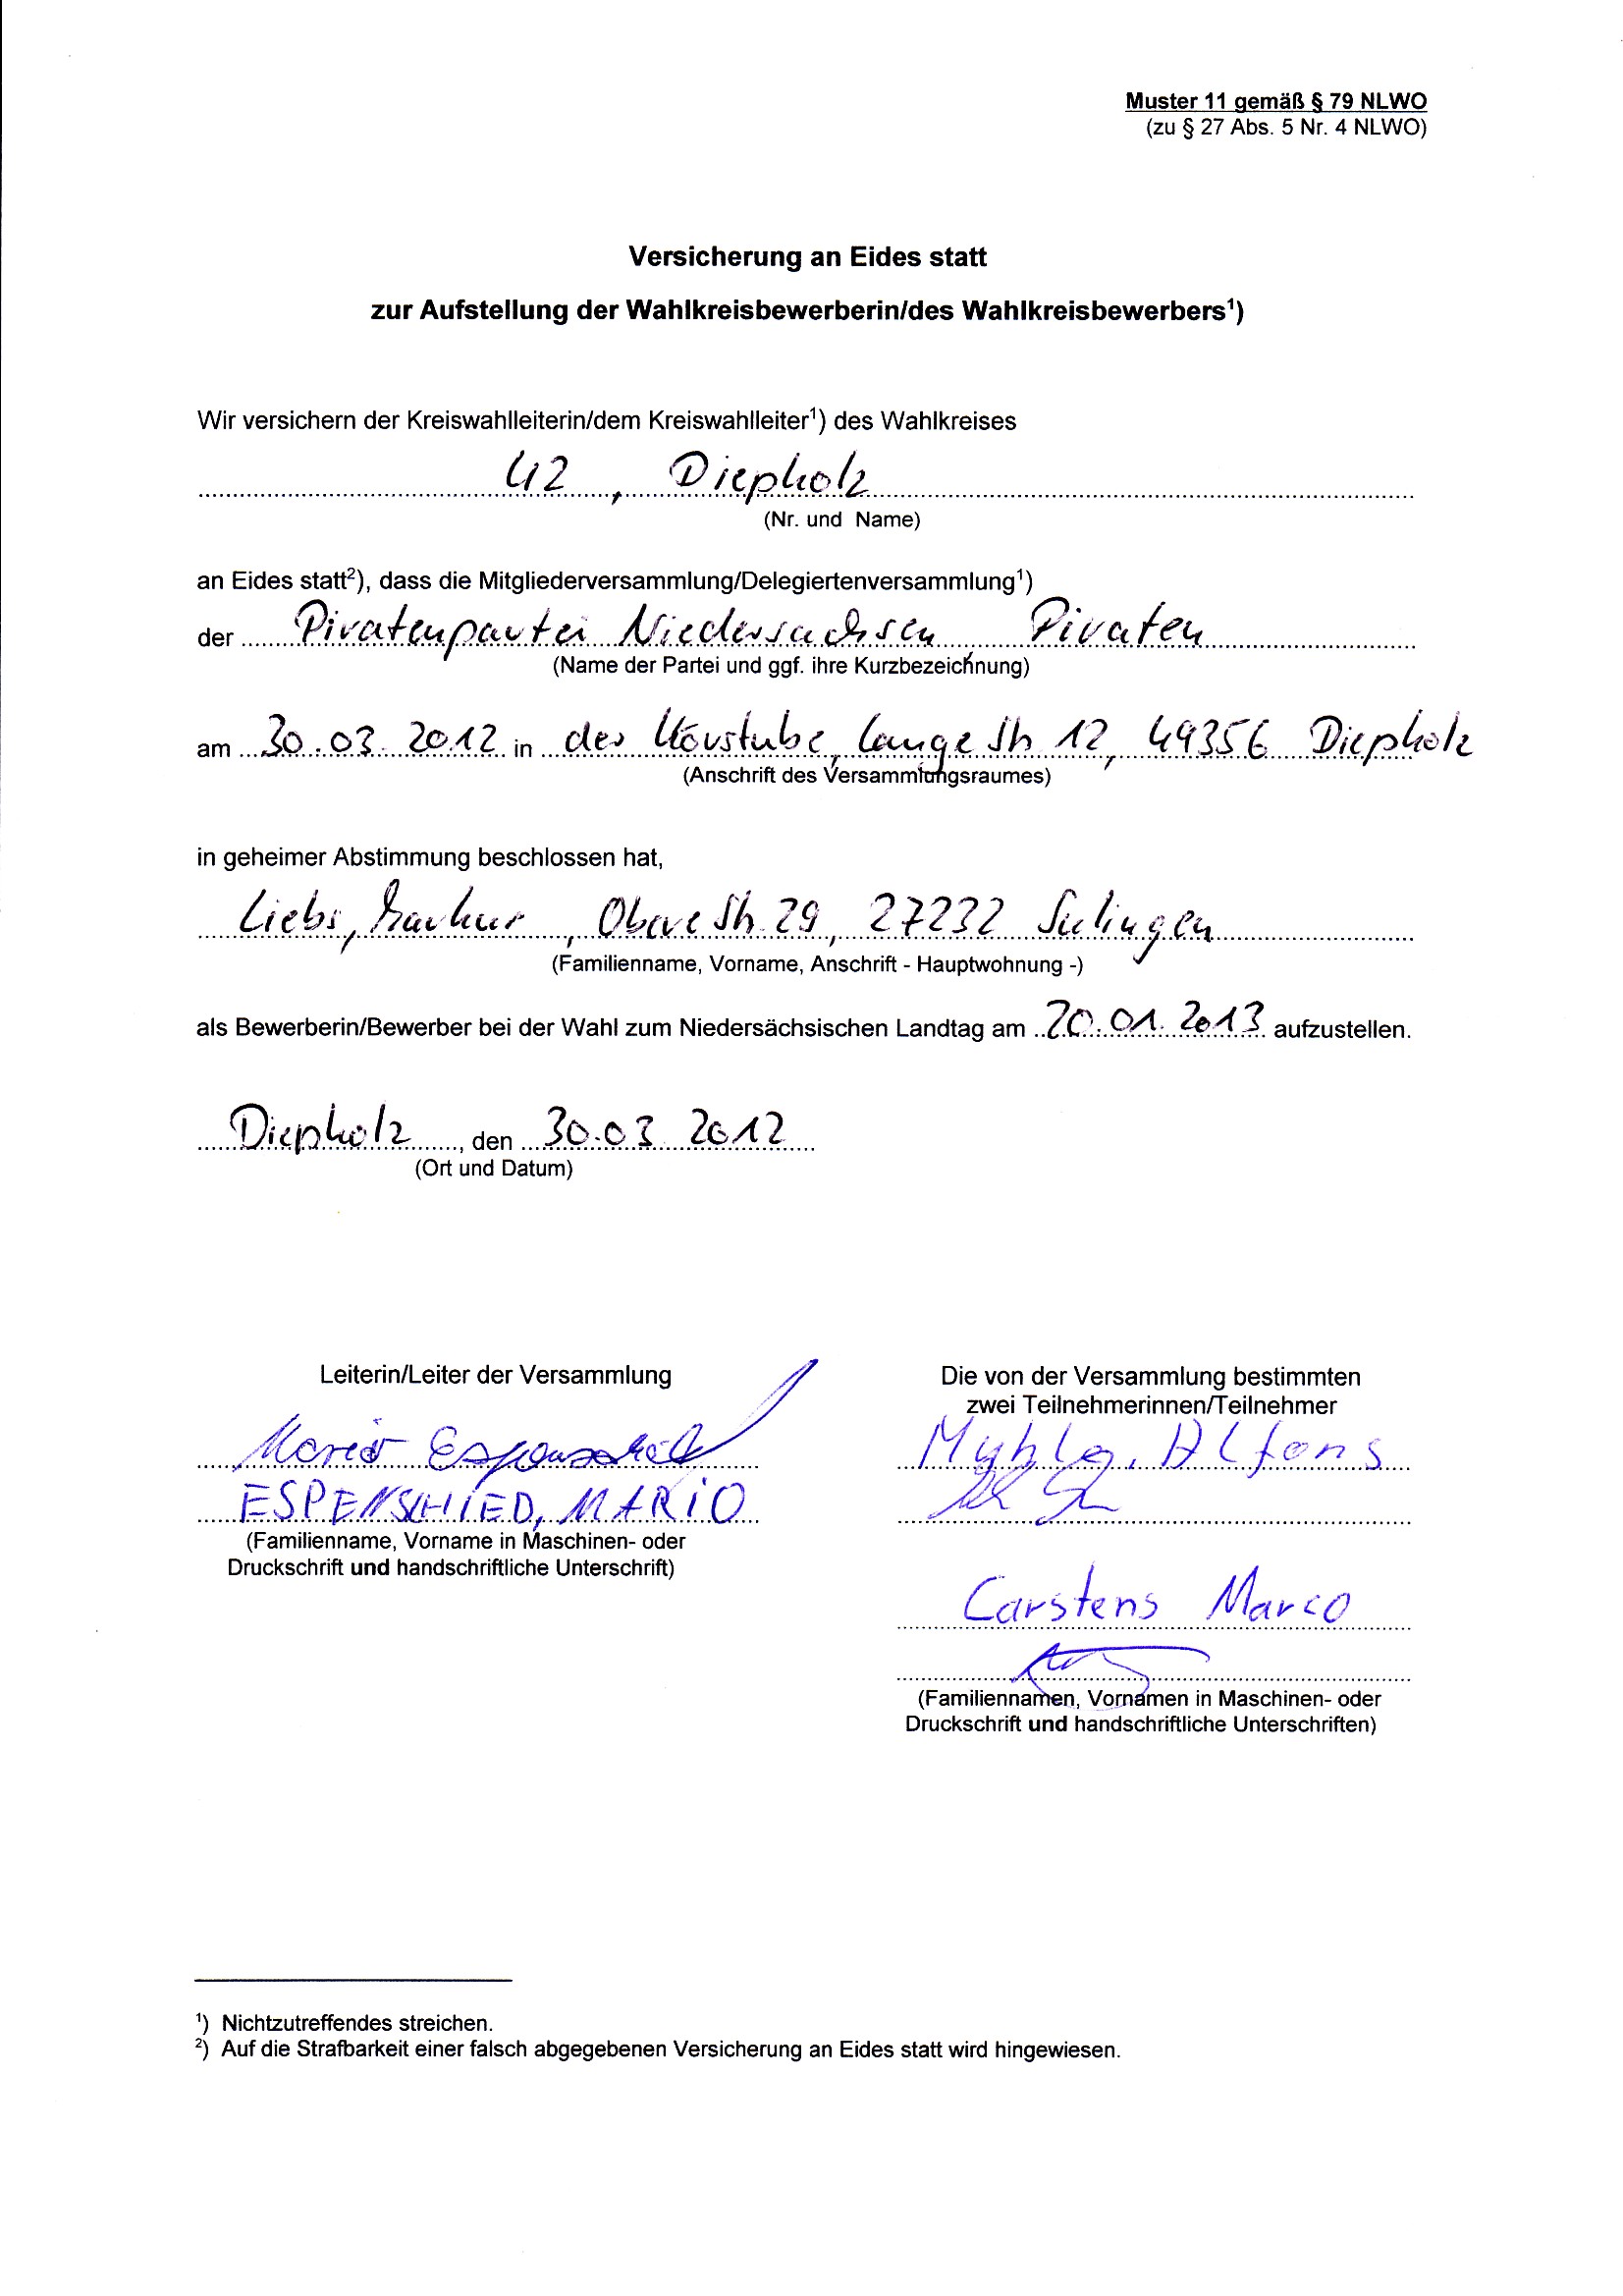 Muster 11 gemäß § 79 NLWO
(zu § 27 Abs. 5 Nr. 4 NLWO)
Versicherung an Eides statt
zur Aufstellung der Wahlkreisbewerberin/des Wahlkreisbewerbers¹)
Wir versichern der Kreiswahlleiterin/dem Kreiswahlleiter¹) des Wahlkreises
42, Diepholz
(Nr. und Name)
an Eides statt²), dass die Mitgliederversammlung/Delegiertenversammlung¹)
der Piratenpartei Niedersachsen Piraten
(Name der Partei und ggf. ihre Kurzbezeichnung)
am 30.03.2012 in der Lange Str. 12, 49356 Diepholz
(Anschrift des Versammlungsraumes)
in geheimer Abstimmung beschlossen hat,
Liebs, , Str. 29, 27232 Sulingen
(Familienname, Vorname, Anschrift - Hauptwohnung -)
als Bewerberin/Bewerber bei der Wahl zum Niedersächsischen Landtag am 20.01.2013 aufzustellen.
Diepholz, den 30.03.2012
(Ort und Datum)
Leiterin/Leiter der Versammlung
Mario Espenschied
ESPENSCHIED, MARIO
(Familienname, Vorname in Maschinen- oder
Druckschrift und handschriftliche Unterschrift)
Die von der Versammlung bestimmten
zwei Teilnehmerinnen/Teilnehmer
Alfons
Carstens Marco
(Familiennamen, Vornamen in Maschinen- oder
Druckschrift und handschriftliche Unterschriften)
¹) Nichtzutreffendes streichen.
²) Auf die Strafbarkeit einer falsch abgegebenen Versicherung an Eides statt wird hingewiesen.